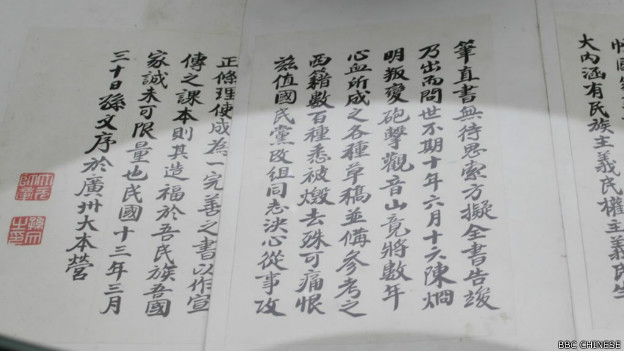 大內涵有民族主義民權主義民生
筆直書無待思索方擬全書告竣
乃出而問世不期十年六月十六陳烱
明叛變砲擊觀音山竟將數年
心血所成之各種草稿並備參考之
西籍數百種悉被燬去殊可痛恨
茲值國民黨改組同志決心從事攻
正條理使成為一完善之書以作宣
傳之課本則其造福於吾民族吾國
家誠未可限量也民國十三年三月
三十日孫文序於廣州大本營
BBC CHINESE